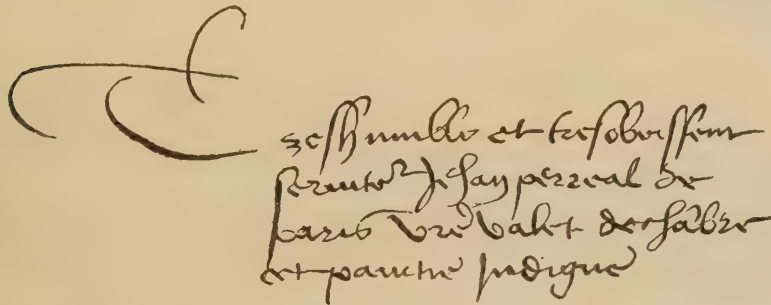 Treshumble et tresobeissent
serviteur Jehan perreal de
paris vre valet de chābre
et painctre Indigne